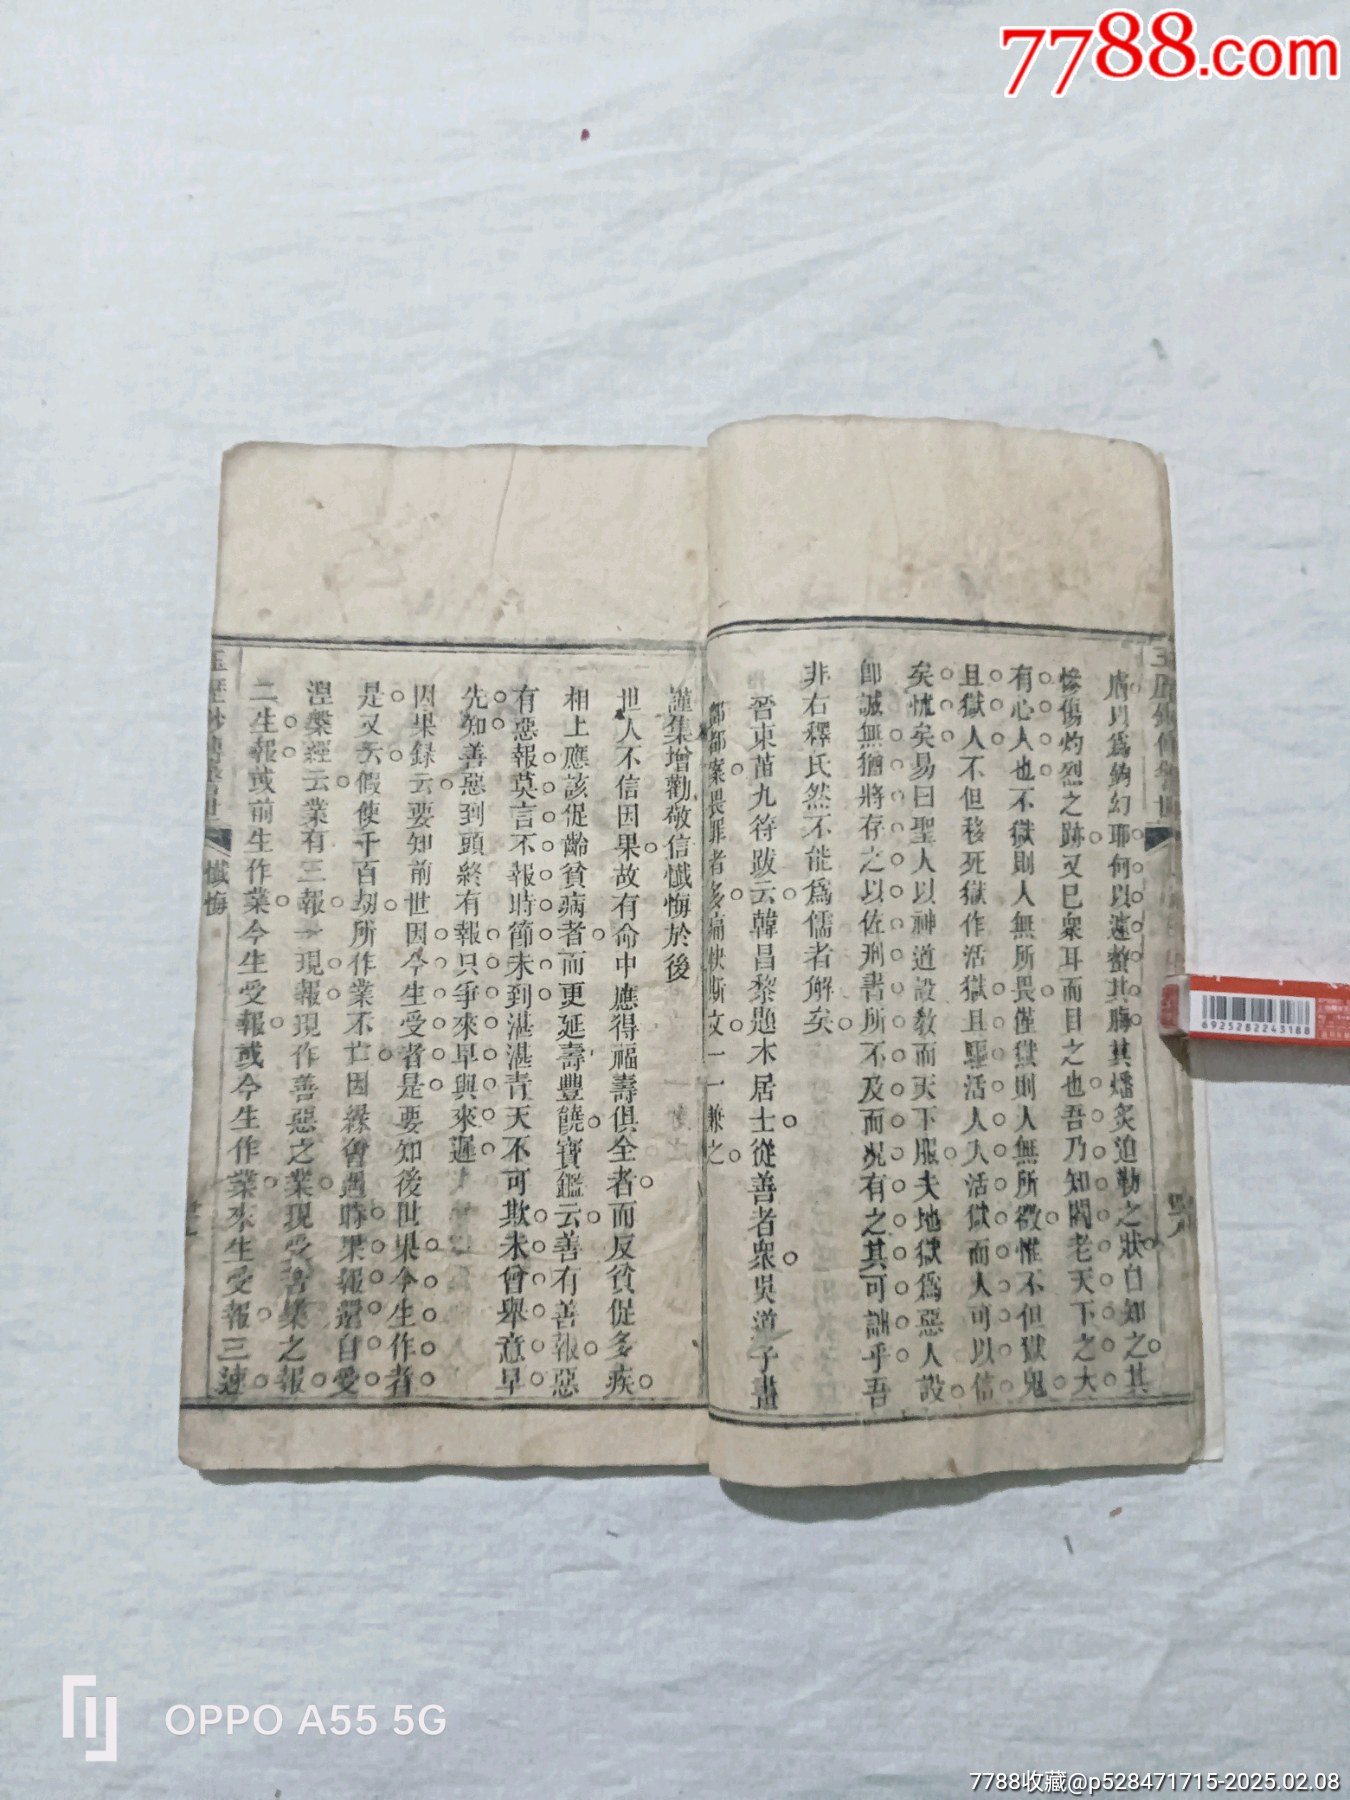 7788.com
唐以爲鉤幻耶何以遽螫其膓其燔炙迫勒之狀白知之其
慘傷灼烈之跡又已衆耳而目之也吾乃知閻老天下之大
有心人也不獄則人無所畏僅獄則人無所徵惟不但獄鬼
且獄人不但移死獄作活獄且驅活人入活獄而人可以信
矣怃矣易曰聖人以神道設敎而天下服夫地獄爲惡人設
卽誠無猶將存之以佐刑書所不及而况有之其可詘乎吾
非右釋氏然不能爲儒者解矣
晉東苗九符跋云韓昌黎題木居士從善者衆吳道子畫
酆都案畏罪者多扁鈌斯文一一兼之
謹集增勸敬信懺悔於後
世人不信因果故有命中應得福壽俱全者而反貧促多疾
相上應該促齡貧病者而更延壽豐饒寳鑑云善有善報惡
有惡報莫言不報時節未到湛湛青天不可欺未曾舉意早
先知善惡到頭終有報只爭來早與來遲
因果録云要知前世因今生受者是要知後世果今生作者
是又云假使千百刼所作業不亡因緣會遇時果報還自受
湼槃經云業有三報一現報現作善惡之業現受苦樂之報
二生報或前生作業今生受報或今生作業來生受報三速
懺悔
6925282243188
OPPO A55 5G
7788收藏@p528471715-2025.02.08